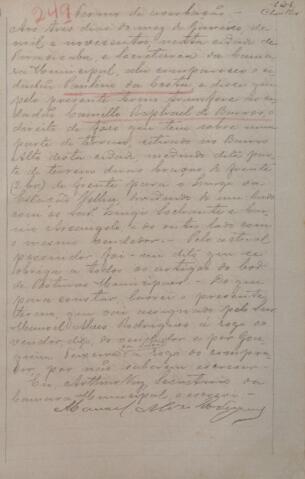 249
Termo de averbação
Aos tres dias do mez de Janeiro de
mil e novecentos, nesta cidade de
Piracicaba, e Secretaria da Cama-
ra Municipal, ahi compareceu o ci-
dadão Paulino da Costa, e disse que
pelo presente termo transfere ao ci-
dadão Camillo Raphael de Barros, o
direito de posse que tem sobre uma
parte de terreno, situado no Bairro
Alto desta cidade, medindo dita par-
te de terreno duas braças de frente
de frente para o Largo da
Estação Velha, dividindo de um lado
com os
e do outro lado com
o mesmo vendedor. Pelo actual
possuidor foi-me dito que se
obrigava a todos os artigos do Cod.
de Posturas Municipaes. Do que
para constar, lavrei o presente
termo, que vai assignado pelo Snr
Manoel Alves Rodrigues a rogo do
vendedor, e por Joa-
quim Teixeira a rogo do compra-
dor, por não saberem escrever.
Eu, Arthur Vaz, Secretario da
Camara Municipal, o escrevi.
Manoel Alves Rodrigues